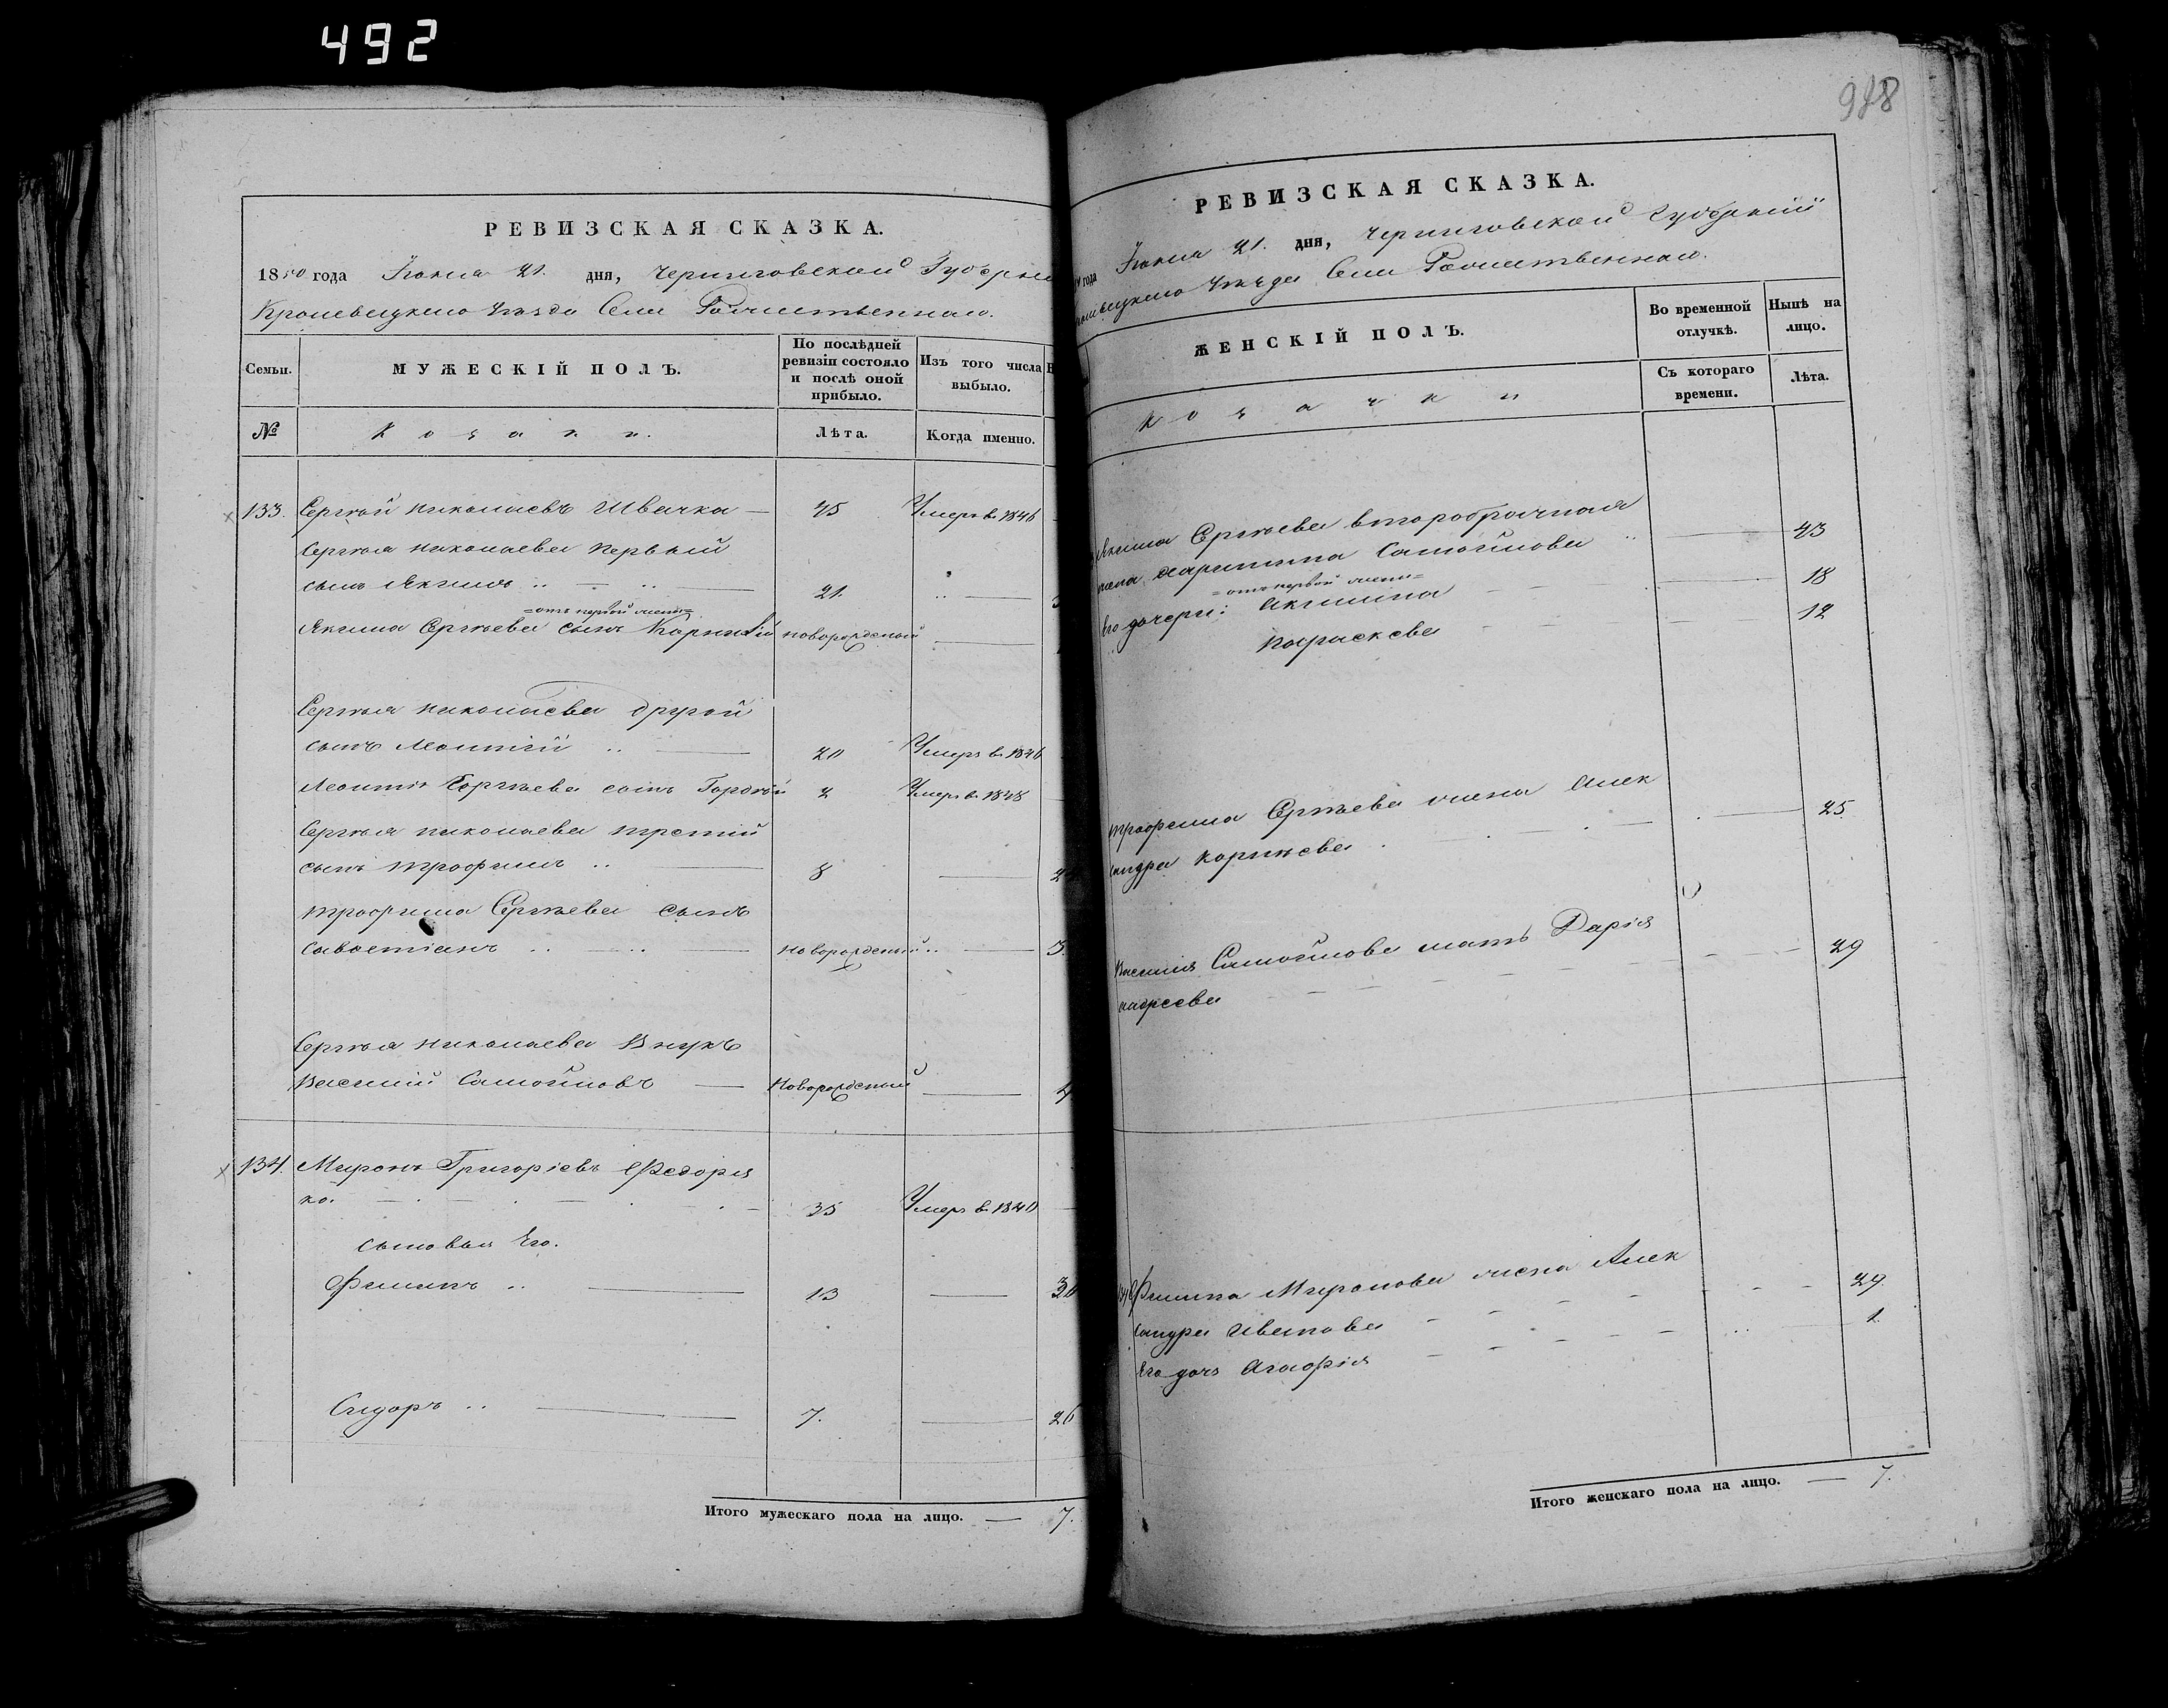 492
РЕВИЗСКАЯ СКАЗКА.
1850 года Іюня 21. дня, Черниговской Губерніи
Кролевецкаго Уѣзда Села Рождественнаго.
Семьи.
МУЖЕСКІЙ ПОЛЪ.
По послѣдней
ревизіи состояло
и послѣ оной
прибыло.
Изъ того числа
выбыло.
№
Козаки.
Лѣта.
Когда именно.
133. Сергѣй Николаевъ Швачка — 45 Умеръ в. 1846
Сергѣя Николаева первый
сынъ Якимъ 21.
=отъ первой жены=
Якима Сергѣева сынъ Корнѣй новорожденый
Сергѣя Николаева другой
сынъ Леонтій 20 Умеръ в. 1846
Леонтія Сергѣева сынъ Гордѣй 2 Умеръ в. 1848
Сергѣя Николаева третій
сынъ Трофимъ 8
Трофима Сергѣева сынъ
Савостіанъ новорожденый 3.
Сергѣя Николаева Внукъ
Василій Самойловъ — Новорожденый
134. Миронъ Григоріевъ Федоря
ко. 35 Умеръ в. 1840
сыновья Его.
Филипъ 13
Сидоръ 7. 26
Итого мужескаго пола на лицо. — 7.
948
РЕВИЗСКАЯ СКАЗКА.
года Іюня 21. дня, Черниговской Губерніи
Уѣзда Села Рождественнаго.
ЖЕНСКІЙ ПОЛЪ.
Во временной
отлучкѣ.
Нынѣ на
лицо.
Козачки
Съ котораго
времени.
Лѣта.
Якима Сергѣева второбрачная
жена Харитина Самойлова 43
=отъ первой жены=
Его дочери: Акилина 18
Параскева 12
Трофима Сергѣева жена Алек
сандра Корнѣева 25
Василія Самойлова мать Дарія
29
Филипа Миронова жена Алек
сандра Иванова 29
Его дочь Агафія 1.
Итого женскаго пола на лицо. — 7.